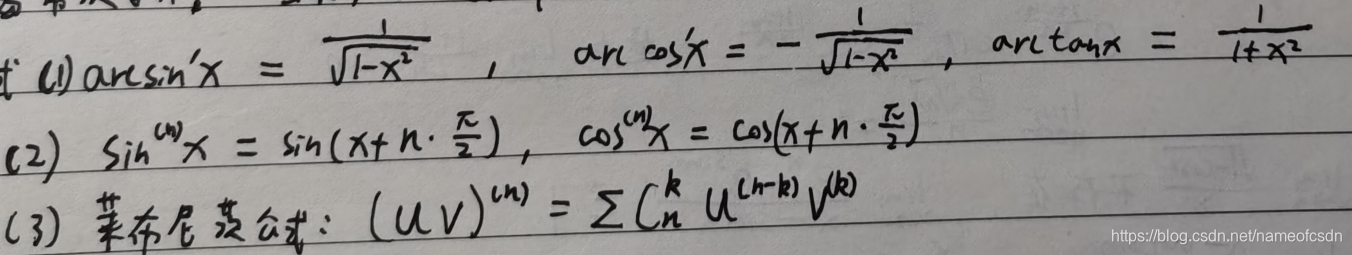 (1) arcsin'x = 1/√(1-x²) , arccos'x = - 1/√(1-x²) , arctanx = 1/(1+x²)
(2) sin⁽ⁿ⁾x = sin(x+n·π/2) , cos⁽ⁿ⁾x = cos(x+n·π/2)
(3) 莱布尼茨公式: (uv)⁽ⁿ⁾ = Σ Cₙᵏ u⁽ⁿ⁻ᵏ⁾ v⁽ᵏ⁾
https://blog.csdn.net/nameofcsdn